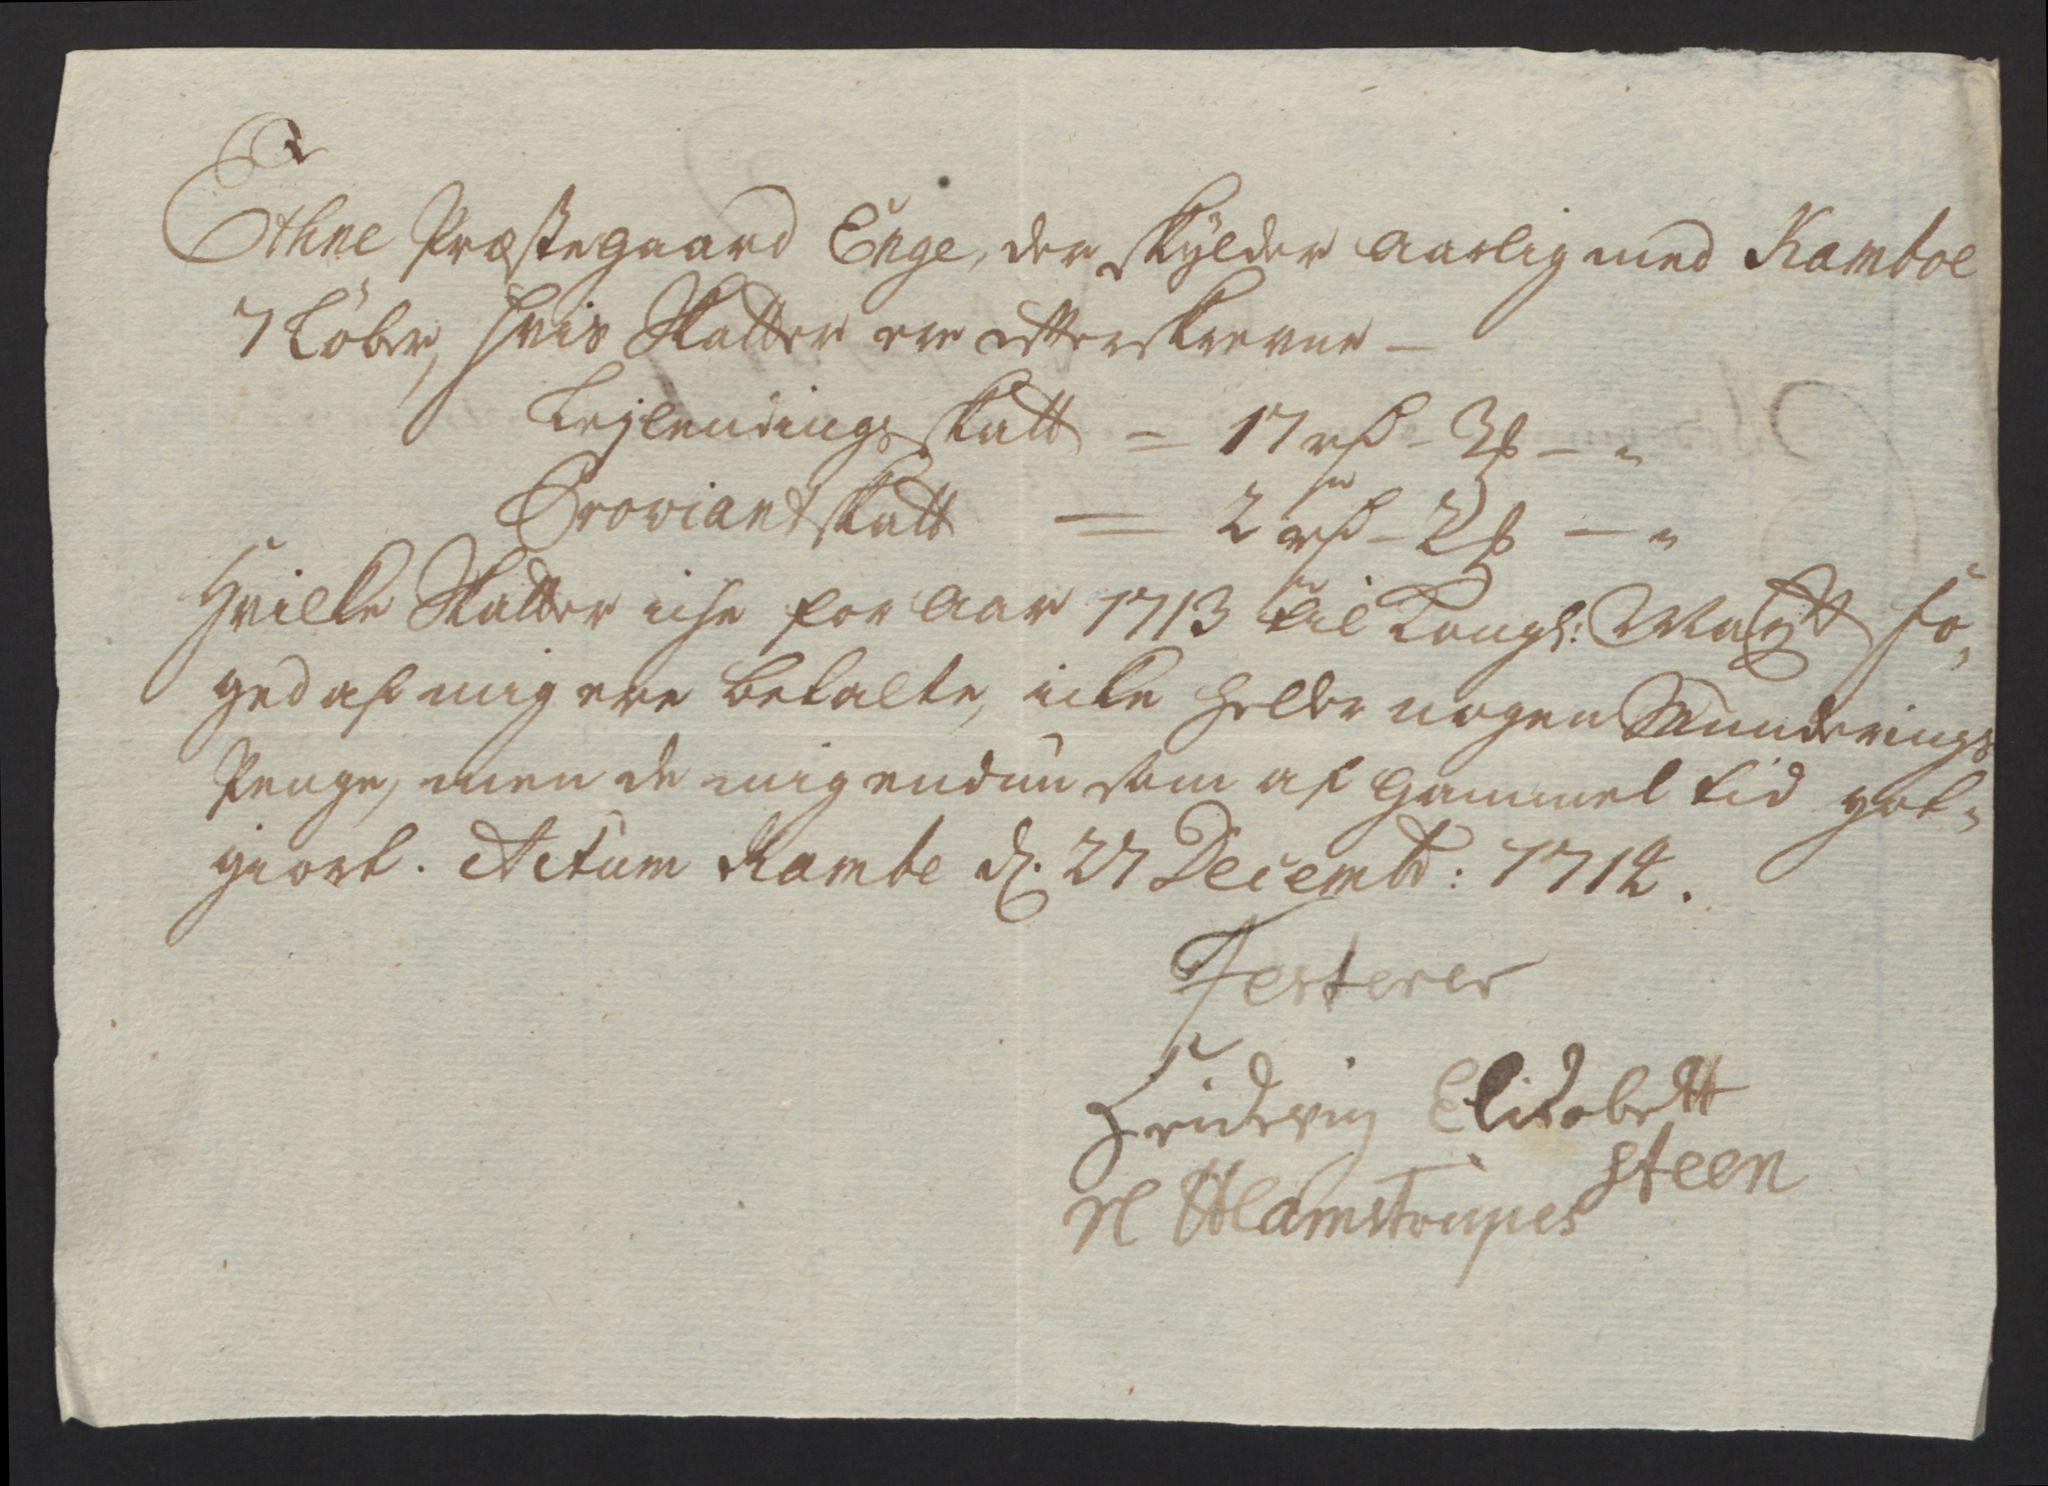 Ethne Præstegaard Enge, der skÿlder aarlig med Kamboe
7 Löber, hvis Skatter ere efterskrevne —
Lejlendings skatt = 17 rd - 3 ß — "
Proviant skatt = 2 rd - 2 ß — "
Hvilke Skatter iche for Aar 1713 til Kongl: Maÿtt fo,
ged af mig ere betalte, icke heller nogen Munderings
Penge, men de mig endnu som af Gammel tid got-
giort. Actum Kambe d. 27 Decembr: 1714.
Testerer
Heidevig Elisabett
Steen
Sl Hamstrupes